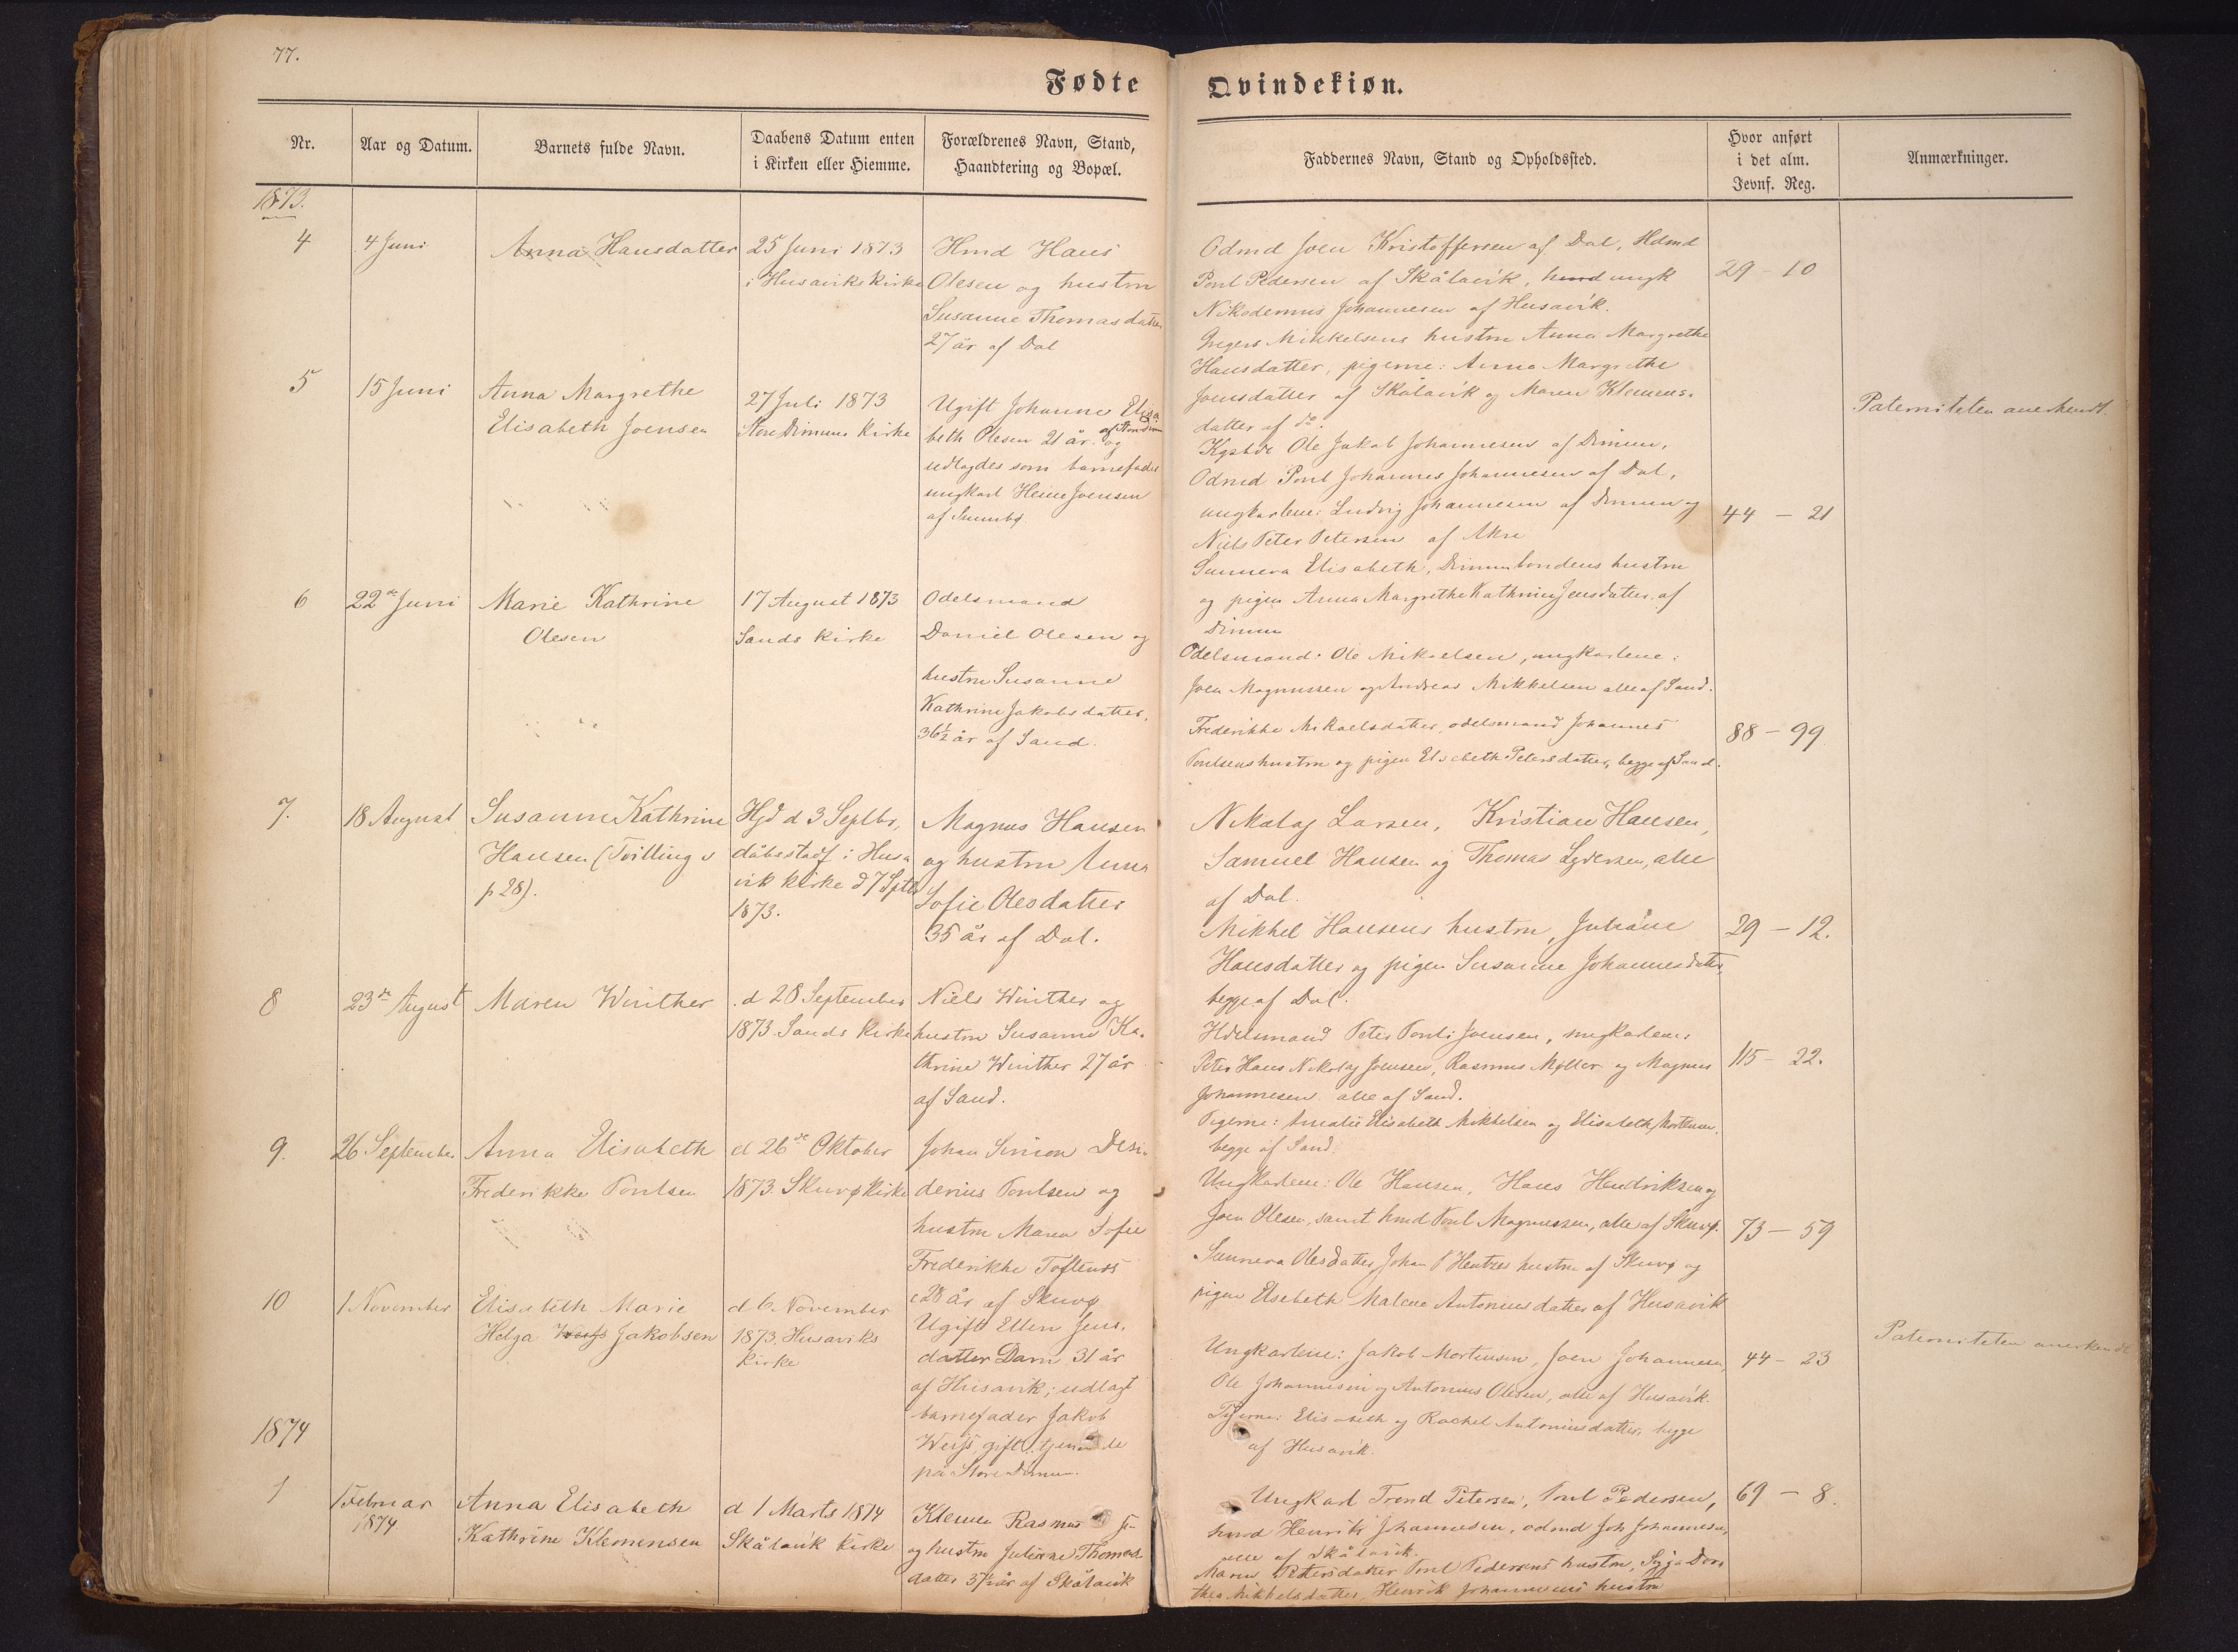 77.
Fødte Qvindekiøn.
Nr.
Aar og Datum.
Barnets fulde Navn.
Daabens Datum enten
i Kirken eller Hiemme.
Forældrenes Navn, Stand,
Haandtering og Bopæl.
Faddernes Navn, Stand og Opholdssted.
Hvor anført
i det alm.
Jevnf. Reg.
Anmærkninger.
1873.
4
4 Juni
Anna Hansdatter
25 Juni 1873
i Husaviks kirke
Hmd Hans
Olesen og hustru
Susanne Thomasdatter
27 år af Dal
Odmd Joen Kristoffersen af Dal, Hdmd
Poul Pedersen af Skålavik, hmd ungk
Nikodemus Johannesen af Husavik.
Gregers Mikkelsens hustru Anna Margrethe
Hansdatter, pigerne: Anna Margrethe
Joensdatter af Skålavik og Maren Klemens-
datter af do.
29 - 10
5
15 Juni
Anna Margrethe
Elisabeth Joensen
27 Juli 1873
Store Dimuns Kirke
Ugift Johanne Elisa-
beth Olesen 21 år og
udlagdes som barnefader
ungkarl Heine Joensen
af Sumbø
Ole Jakob Johannesen af Dimun,
Odmd Poul Johannes Johannesen af Dal,
ungkarlene: Ludvig Johannesen af Dimun og
Niels Peter Petersen af Akre
Sunneva Elisabeth, Dimunbondens hustru
og pigen Anna Margrethe Kathrine Jensdatter af
Dimun
44 - 21
Paterniteten anerkendt.
6
22de Juni
Marie Kathrine
Olesen
17 August 1873
Sands kirke
Odelsmand
Daniel Olesen og
hustru Susanne
Kathrine Jakobsdatter,
36½ år af Sand.
Odelsmand Ole Mikaelsen, ungkarlene:
Joen Magnussen og Andreas Mikkelsen alle af Sand.
Frederikke Mikaelsdatter, odelsmand Johannes
Poulsens hustru og pigen Elsebeth Petersdatter, begge af Sand.
88 - 99
7.
18 August
Susanne Kathrine
Hansen (Tvilling v
p 28).
Hjd d 3 Septbr,
dåbstadf i Husa
vik kirke d 7 Sptbr
1873.
Magnus Hansen
og hustru Anna
Sofie Olesdatter
35 år af Dal.
Nikolaj Larsen, Kristian Hansen,
Samuel Hansen og Thomas Lydersen, alle
af Dal.
Mikkel Hansens hustru, Juliane
Hansdatter og pigen Susanne Johannesdatter
begge af Dal.
29 - 12.
8
23de August
Maren Winther
d 28 September
1873. Sands Kirke
Niels Winther og
hustru Susanne Ka-
thrine Winther 27 år
af Sand.
Odelsmand Peter Poul Joensen, ungkarlene:
Peter Hans Nikolaj Joensen, Rasmus Møller og Magnus
Johannesen alle af Sand.
Pigerne: Amalie Elisabeth Mikkelsen og Elisabeth Mortensen,
begge af Sand.
115 - 22.
9.
26 September
Anna Elisabeth
Frederikke Poulsen
d 26de Oktober
1873. Skuvø Kirke
Johan Simon Desi-
derius Poulsen og
hustru Maren Sofie
Frederikke Toftenss
28 år af Skuvø
Ungkarlene: Ole Hansen, Hans Hendriksen og
Joen Olesen, samt hmd Poul Magnussen, alle af Skuvø.
Sunneva Olesdatter, Johan P Hentzes hustru af Skuvø og
pigen Elsebeth Malene Antoniusdatter af Husavik
73 - 59
10
1 November
Elisabeth Marie
Helga Weyhs Jakobsen
d 6 November
1873. Husaviks
Kirke
Ugift Ellen Jens-
datter Dam 31 år
af Husavik; udlagt
barnefader Jakob
Weihs, gift, tjenende
på Store Dimun.
Ungkarlene: Jakob Mortensen, Joen Johannesen,
Ole Johannesen og Antonius Olesen, alle af Husavik.
Pigerne: Elisabeth og Rachel Antoniusdatter, begge
af Husavik.
44 - 23
Paterniteten anerkendt
1874
1
1 Februar
1874.
Anna Elisabeth
Kathrine Klemensen
d 1 Marts 1874
Skålavik Kirke
Klemen Rasmus
og hustru Juliane Thomas-
datter 37½ år af Skålavik
Ungkarl Trond Petersen, Poul Pedersen,
hmd Henrik Johannesen, odmd Joh Johannesen,
alle af Skålavik.
Maren Petersdatter Poul Pedersens hustru, Sigga Doro
thea Mikkelsdatter, Henrik Johannesens hustru
69 - 8.